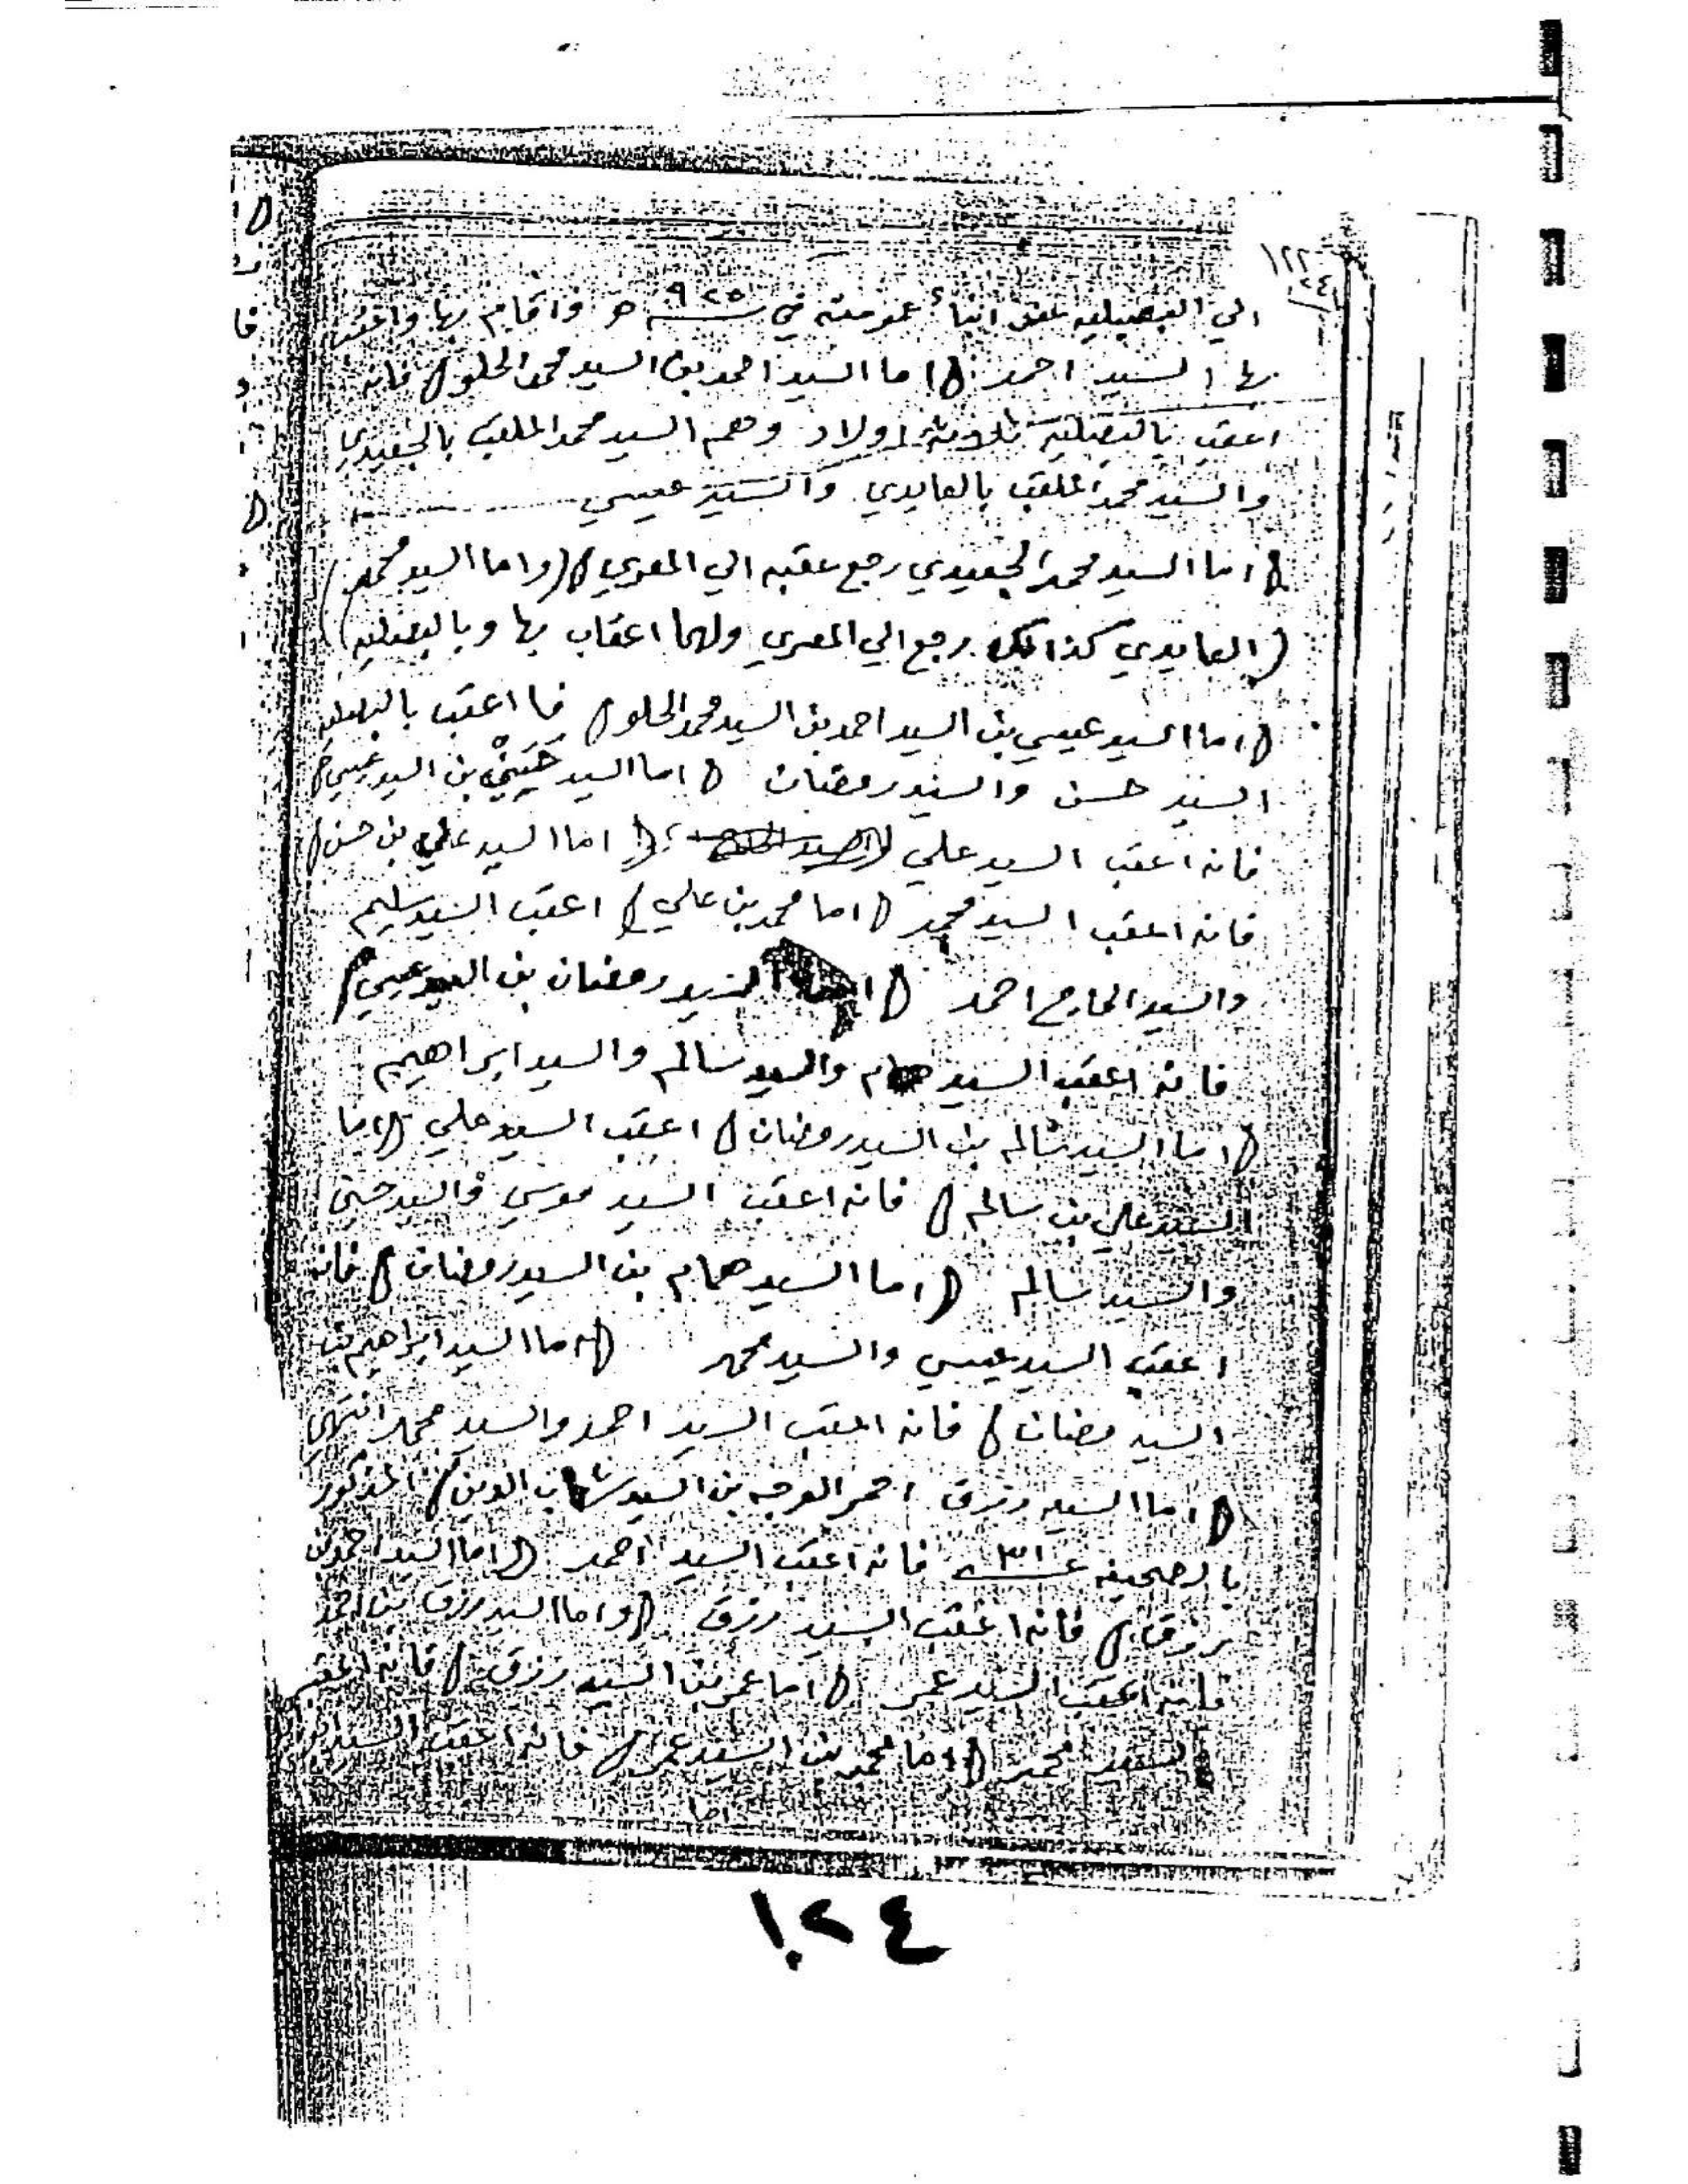 الي البصيليه عند ابنأ عمومته في سنة ٩٢٥ هـ واقام بها واعقب
بها السيد احمد () اما السيد احمد بن السيد محمد الحلو () فانه
اعقب بالبصيليه ثلاوثة اولاد وهم السيد محمد الملقب بالجعيدي
والسيد محمد الملقب بالعايدي والسيد عيسي
() اما السيد محمد الجعيدي رجع عقبه الي المعري () (واما السيد محمد)
(العايدي كذالك رجع الي المعري ولهما اعقاب بها وبالبصيليه)
() اما السيد عيسي بن السيد احمد بن السيد محمد الحلو () فا اعقب بالبصيليه
السيد حسن والسيد رمضان () اما السيد بن السيد عيسي ()
فانه اعقب السيد علي () اما السيد علي بن حسن ()
فانه اعقب السيد محمد () اما محمد بن علي () اعقب السيد سليم
والسيد الحاج احمد () اما السيد رمضان بن السيد عيسي ()
فانه اعقب السيد همام والسيد سالم والسيد ابراهيم
() اما السيد سالم بن السيد رمضان () اعقب السيد علي () اما
السيد علي بن سالم () فانه اعقب السيد موسي والسيد حسن
والسيد سالم () اما السيد همام بن السيد رمضان () فانه
اعقب السيد عيسي والسيد محمد () اما السيد ابراهيم بن
السيد رمضان () فانه اعقب السيد احمد والسيد محمد انتهي
() اما السيد رزق احمر الوجه بن السيد شهاب الدين () المذكور
بالصحيفه ٣١ فانه اعقب السيد احمد () اما السيد احمد بن
رزق () فانه اعقب السيد رزق () واما السيد رزق بن احمد
فانه اعقب السيد عمر () اما عمر بن السيد رزق () فانه اعقب
السيد محمد () اما محمد بن السيد عمر () فانه اعقب السيد
اما
١٠٢٤